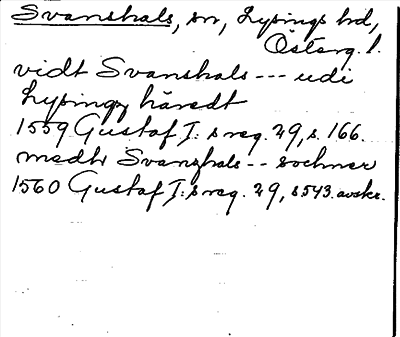 Svanshals, sn, Lysings hd,
Österg. l.
vidt Svanshals --- udi
Lysingz häredt
1559 Gustaf I: s reg. 29, s. 166.
medh Svanzhals -- sochner
1560 Gustaf I: s reg. 29, s 543. avskr.